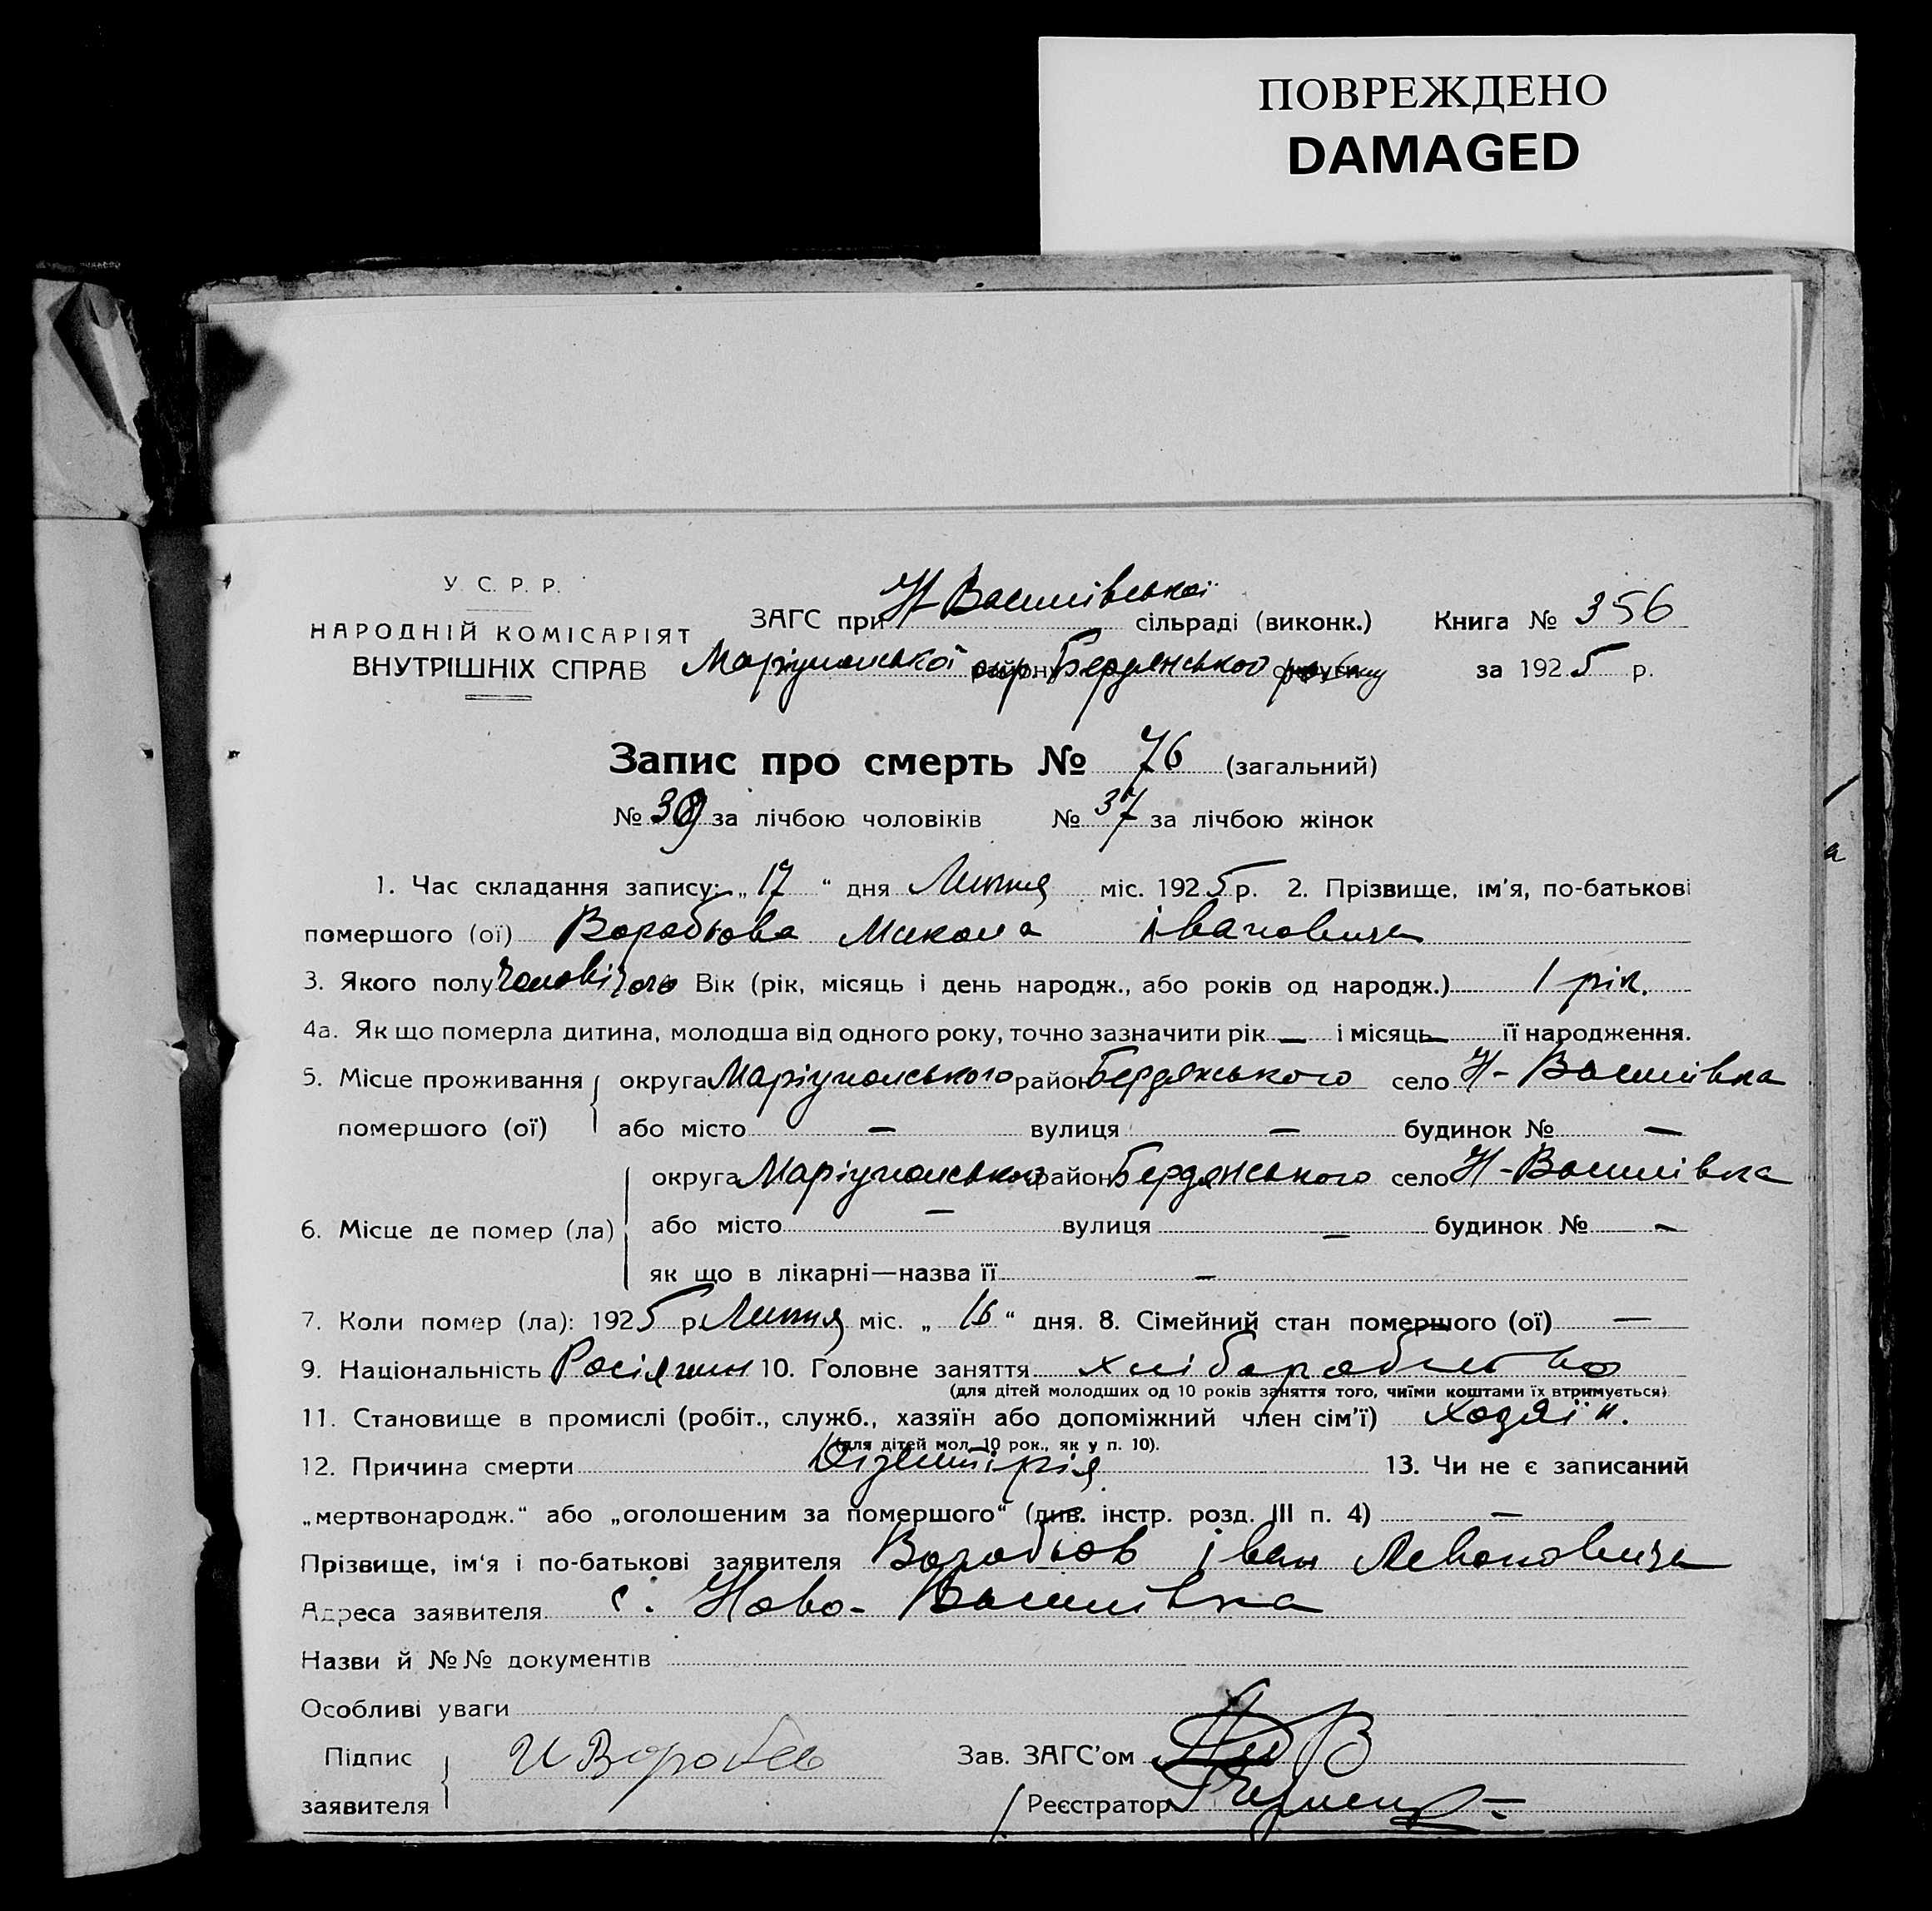 ПОВРЕЖДЕНО
DAMAGED
У. С. Р. Р.
НАРОДНІЙ КОМІСАРІЯТ
ВНУТРІШНІХ СПРАВ
ЗАГС при Н Василівської сільраді (виконк.) Книга № 356
Маріупольської окр. Бердянського району за 1925 р.
Запис про смерть № 76 (загальний)
№ 39 за лічбою чоловіків № 37 за лічбою жінок
1. Час складання запису: „ 17 “ дня Липня міс. 1925 р. 2. Прізвище, ім'я, по-батькові
помершого (ої) Воробьова Микола івановича
3. Якого полу Чоловічого Вік (рік, місяць і день народж., або років од народж.) 1 рік.
4а. Як що померла дитина, молодша від одного року, точно зазначити рік — і місяць — її народження.
5. Місце проживання округа Маріупольського район Бердянського село Н-Василівка
помершого (ої) або місто — вулиця — будинок № —
округа Маріупольського район Бердянського село Н-Василівка
6. Місце де помер (ла) або місто — вулиця — будинок № —
як що в лікарні—назва її —
7. Коли помер (ла): 1925 р. Липня міс. „ 16 “ дня. 8. Сімейний стан помершого (ої) —
9. Національність Росіянин 10. Головне заняття хліборобство
(для дітей молодших од 10 років заняття того, чиїми коштами їх втримується)
11. Становище в промислі (робіт., служб., хазяїн або допоміжний член сім'ї) Ходяїн.
(для дітей мол. 10 рок., як у п. 10).
12. Причина смерти Дізентірія 13. Чи не є записаний
„мертвонародж.“ або „оголошеним за помершого“ (див. інстр. розд. III п. 4) —
Прізвище, ім'я і по-батькові заявителя Воробьов іван Левоновича
Адреса заявителя с. Ново-Василівка
Назви й №№ документів
Особливі уваги
Підпис И Воробев Зав. ЗАГС'ом
заявителя Реєстратор